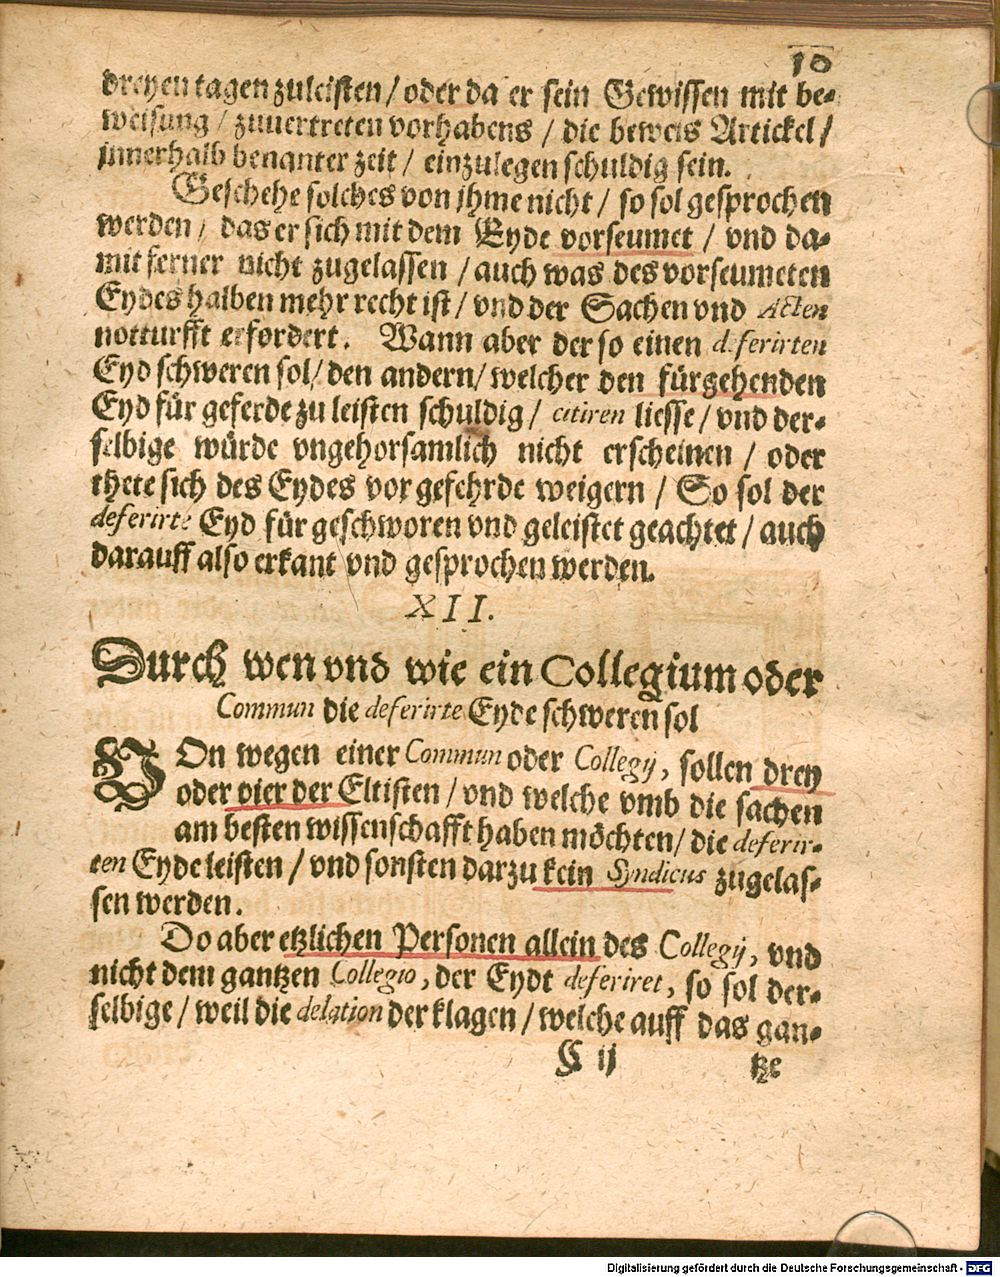 10
dreyen tagen zuleisten / oder da er sein Gewissen mit be-
weisung / zuuertreten vorhabens / die beweis Artickel /
jnnerhalb benanter zeit / einzulegen schuldig sein.
Geschehe solches von jhme nicht / so sol gesprochen
werden / das er sich mit dem Eyde vorseumet / vnd da-
mit ferner nicht zugelassen / auch was des vorseumeten
Eydes halben mehr recht ist / vnd der Sachen vnd Acten
notturfft erfordert. Wann aber der so einen deferirten
Eyd schweren sol / den andern / welcher den fürgehenden
Eyd für geferde zu leisten schuldig / citiren liesse / vnd der-
selbige würde vngehorsamlich nicht erscheinen / oder
thete sich des Eydes vor gefehrde weigern / So sol der
deferirte Eyd für geschworen vnd geleistet geachtet / auch
darauff also erkant vnd gesprochen werden.
XII.
Durch wen vnd wie ein Collegium oder
Commun die deferirte Eyde schweren sol
VOn wegen einer Commun oder Collegij, sollen drey
oder vier der Eltisten / vnd welche vmb die sachen
am besten wissenschafft haben möchten / die deferir-
ten Eyde leisten / vnd sonsten darzu kein Syndicus zugelas-
sen werden.
Do aber etzlichen Personen allein des Collegij, vnd
nicht dem gantzen Collegio, der Eydt deferiret, so sol der-
selbige / weil die delation der klagen / welche auff das gan-
C ij tze
Digitalisierung gefördert durch die Deutsche Forschungsgemeinschaft - DFG